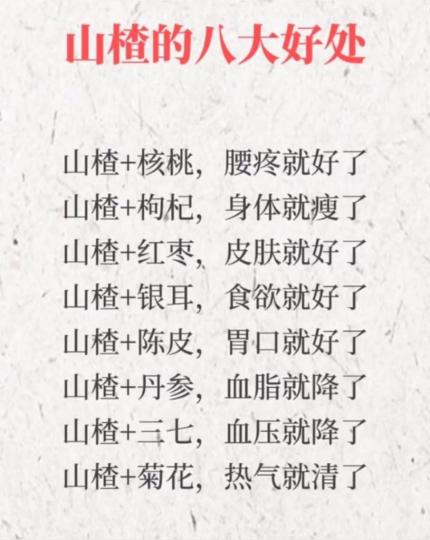 山楂的八大好处
山楂+核桃，腰疼就好了
山楂+枸杞，身体就瘦了
山楂+红枣，皮肤就好了
山楂+银耳，食欲就好了
山楂+陈皮，胃口就好了
山楂+丹参，血脂就降了
山楂+三七，血压就降了
山楂+菊花，热气就清了